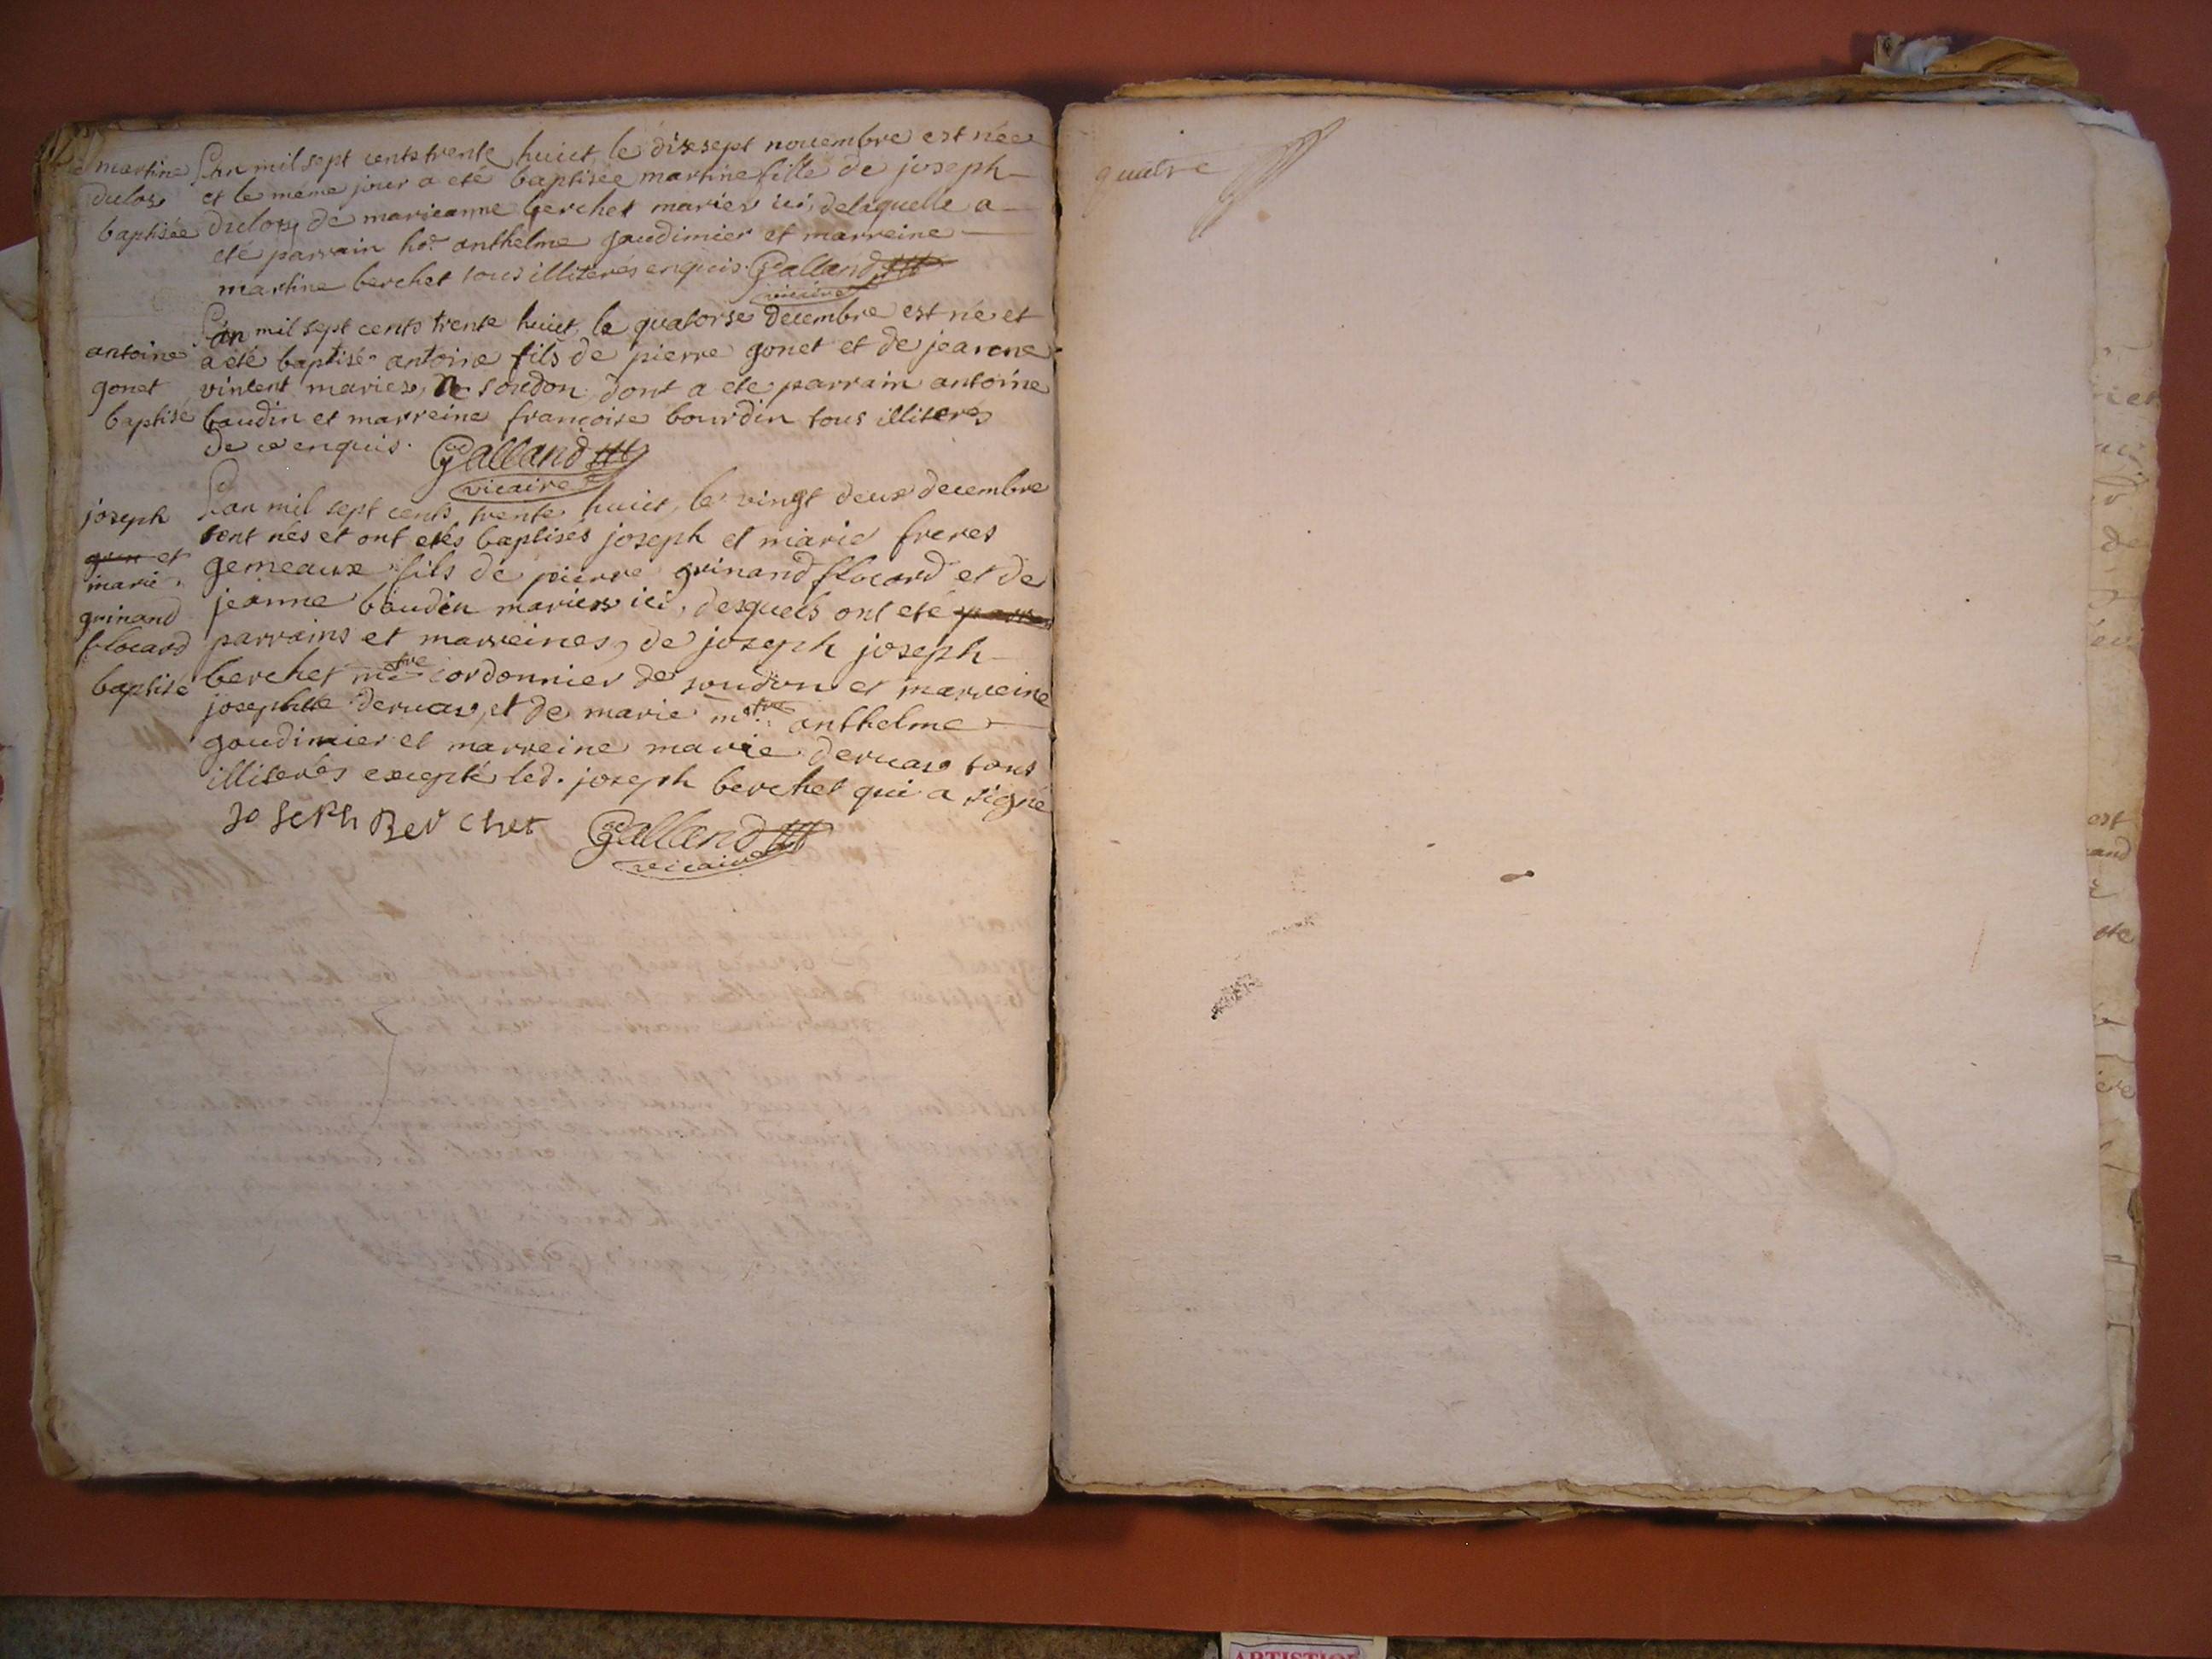 martine L'an mil sept cents trente huict, le dixsept novembre est née
et le même jour a eté baptisée martine fille de joseph
baptisée de marieanne berchet mariés ici, delaquelle a
eté parrain ho.e anthelme gaudimier et marreine
martine berchet tous illiterés enquis. Galland
vicaire
L'an mil sept cents trente huict, le quatorse decembre est né et
antoine a eté baptisé antoine fils de pierre gonet et de jeanne
gonet vincent mariés, de soudon, dont a eté parrain antoine
baptisé baudin et marreine françoise bourdin tous illiterés
de ce enquis. Galland
vicaire
joseph L'an mil sept cents trente huict, le vingt deux decembre
sont nés et ont etés baptisés joseph et marie freres
et
marie gemeaux fils de pierre grinand flocard et de
grinand jeanne baudin mariés ici, desquels ont eté
flocard parrains et marreines, de joseph joseph
baptisé berchet m.tre cordonnier de soudon et marreine
josephte dervas, et de marie m.tre anthelme
gaudimier et marreine marie dervas tous
illiterés excepté led. joseph berchet qui a signé
Joseph Berchet Galland
vicaire
quatre
de
est
and
ete
ARTISTIQUE